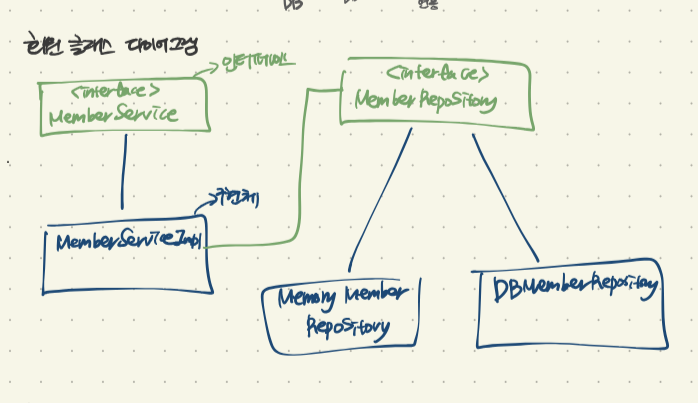 DB
회원 클래스 다이어그램
인터페이스
<interface>
MemberService
<interface>
MemberRepository
구현체
MemberServiceImpl
Memory Member
Repository
DBMemberRepository